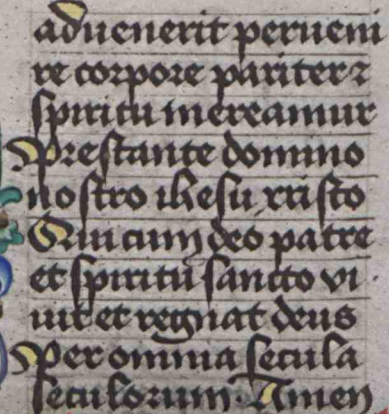 aduenerit perueni
re corpore pariter ⁊
spiritu mereamur
Prestante domino
nostro ihesu xristo
Qui cum deo patre
et spiritu sancto vi
uit et regnat deus
Per omnia secula
seculorum. Amen